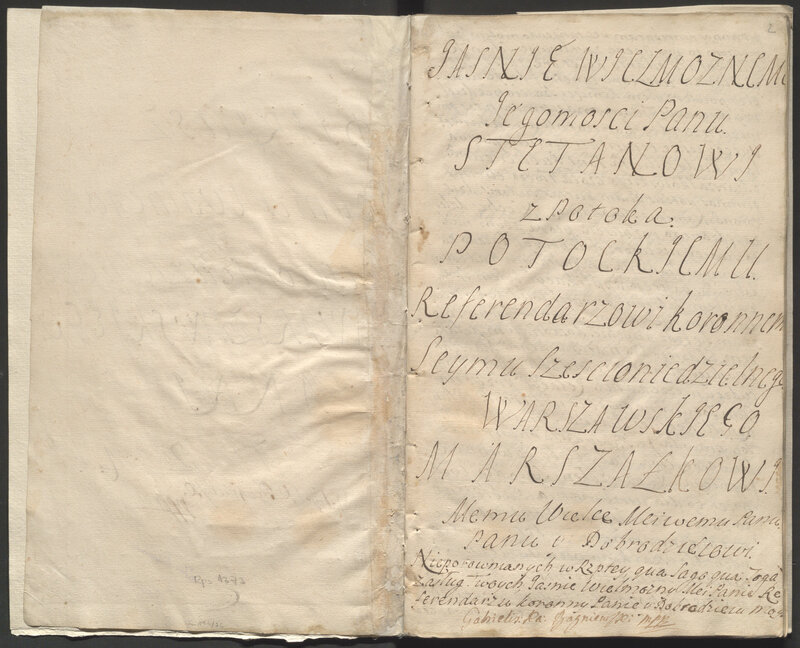 2
JASNIE WIELMOZNEMU
Jegomosci Panu.
STEFANOWI
z Potoka.
POTOCKIEMU.
Referendarzowi koronnem
Seymu Szescioniedzielnego
WARSZAWSKIEGO
MARSZAŁKOWI.
Memu Wielce Mciwemu Panu
Panu y Dobrodzieiowi.
Nieporownanych w Rzptey qua Sago qua Toga
zasług Twoych, Jasnie Wielmozny Mci Panie Re
ferendarzu koronny Panie y Dobrodzieiu